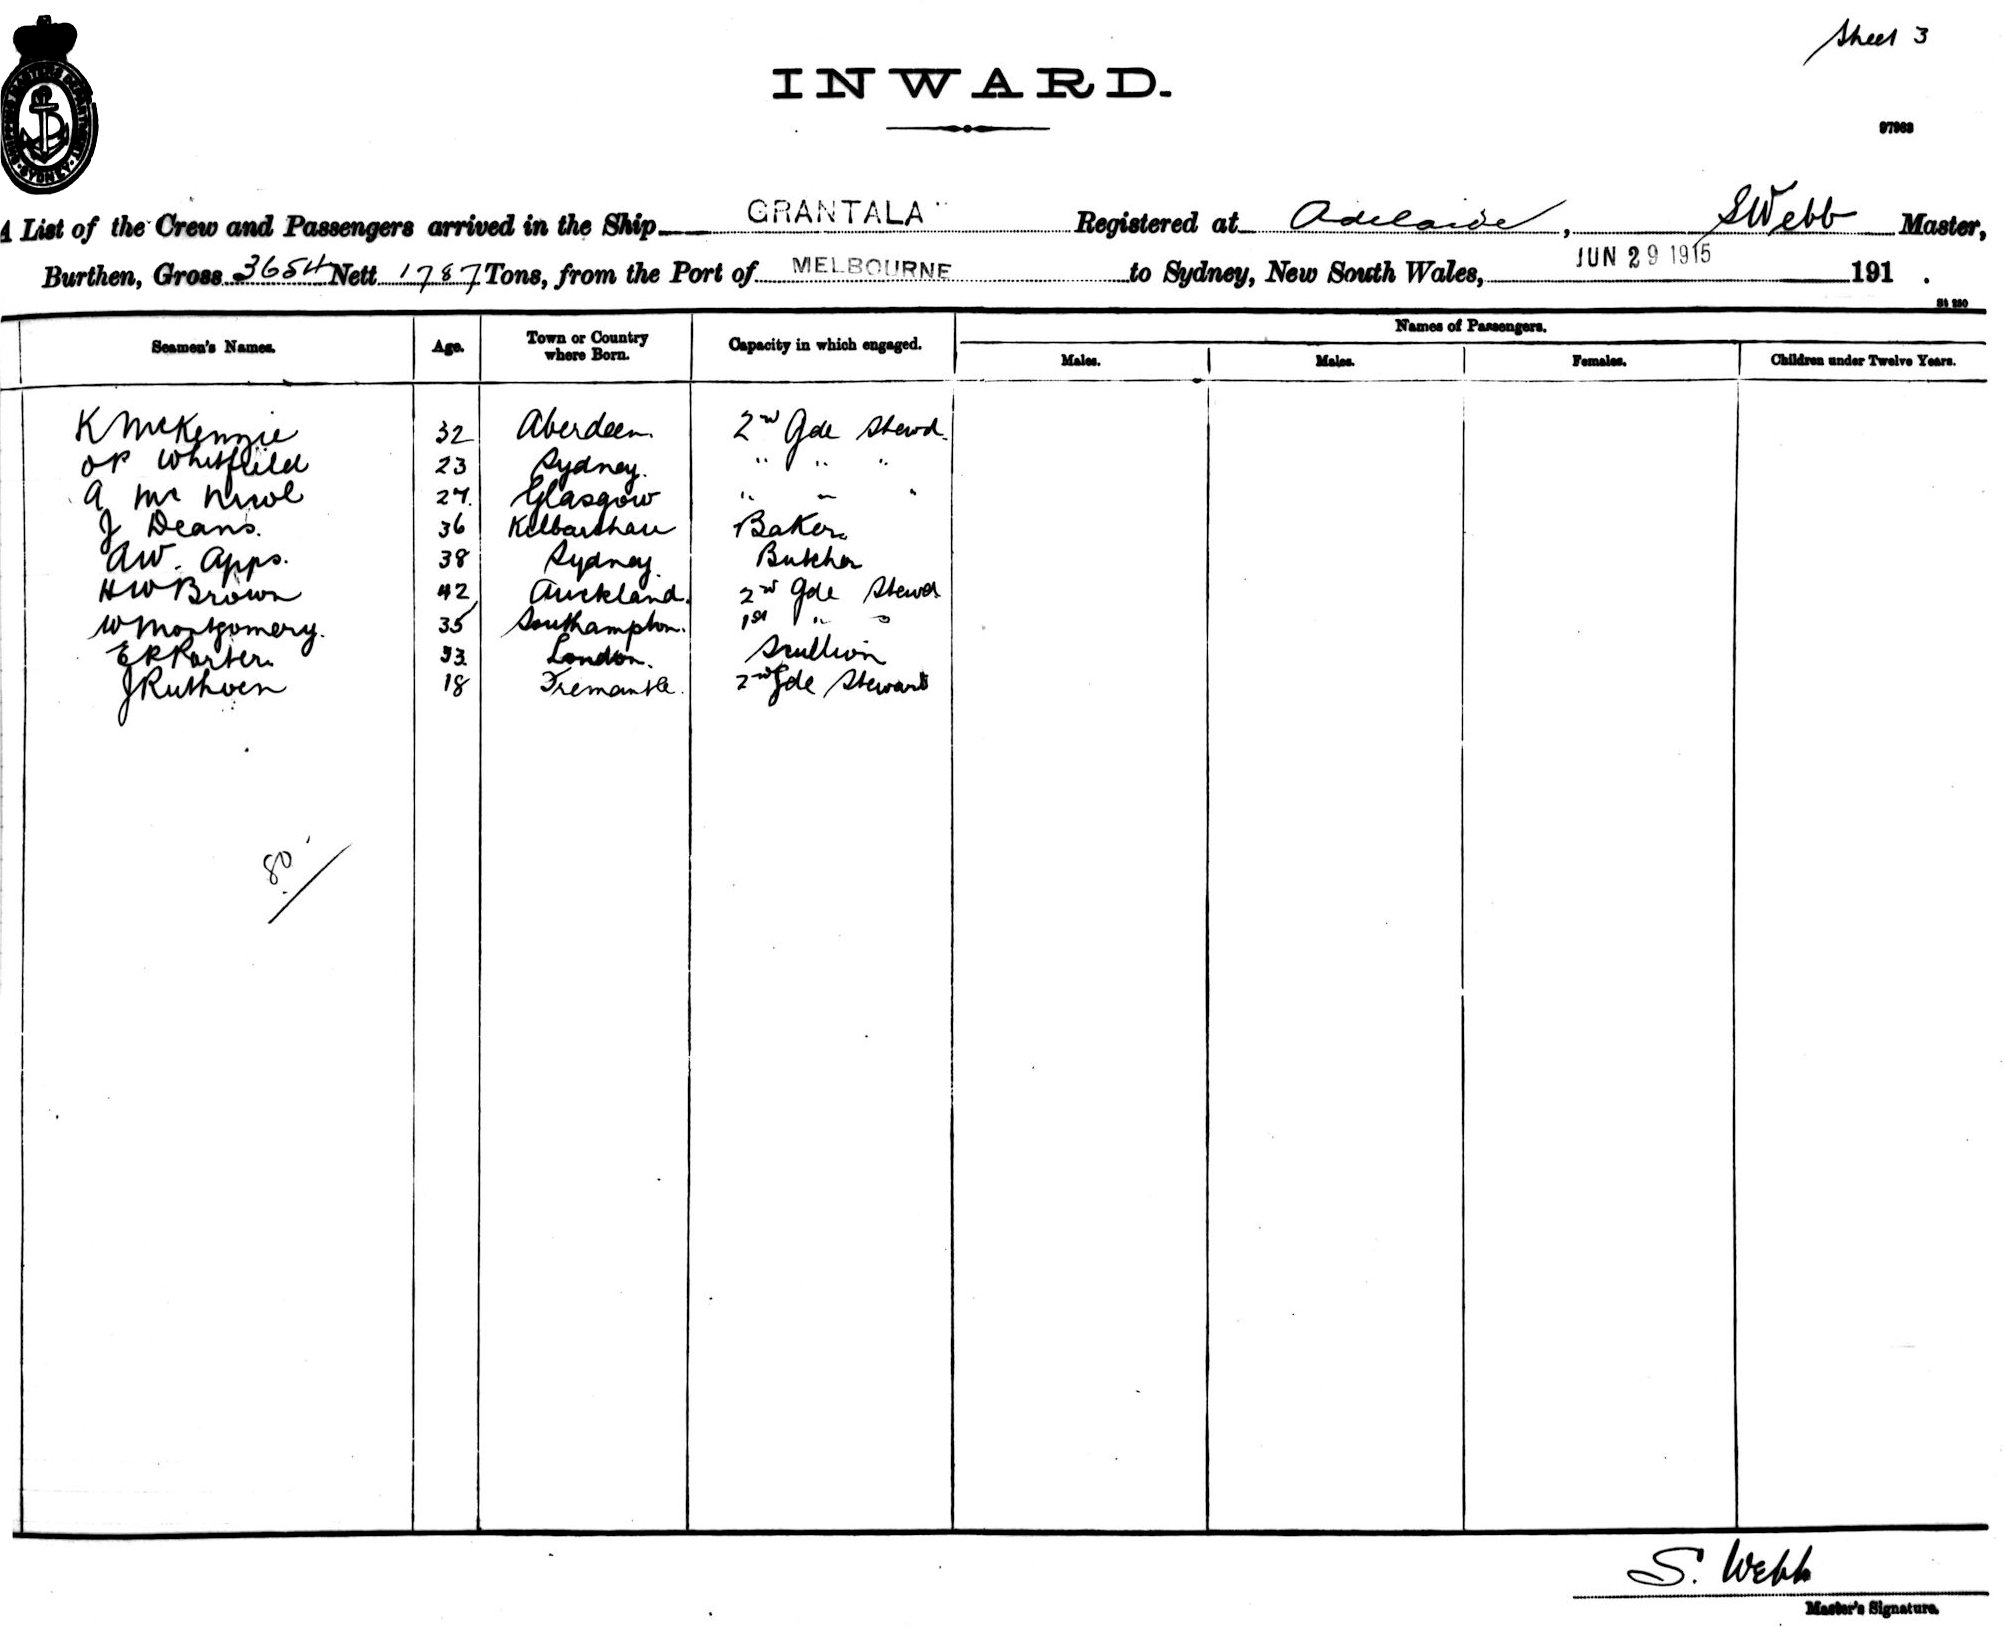 Sheet 3
INWARD.
97963
A List of the Crew and Passengers arrived in the Ship GRANTALA" Registered at Adelaide, SWebb Master,
Burthen, Gross 3654 Nett 1787 Tons, from the Port of MELBOURNE to Sydney, New South Wales, JUN 29 1915 191 .
Seamen's Names. Age. Town or Country where Born. Capacity in which engaged. Names of Passengers.
Males. Males. Females. Children under Twelve Years.
K McKenzie 32 Aberdeen. 2nd Gde Stewd.
OP Whitfield 23 Sydney. " " "
A Mc Nicol 27. Glasgow " " "
J Deans. 36 Baker.
AW. Apps. 38 Sydney. Butcher
HW Brown 42 Auckland. 2nd Gde Stewd
W Montgomery. 35 Southampton. 1st " "
E R Porter. 33. London. Scullion
J Ruthven 18 Fremantle. 2nd Gde Steward
80
S. Webb
Master's Signature.